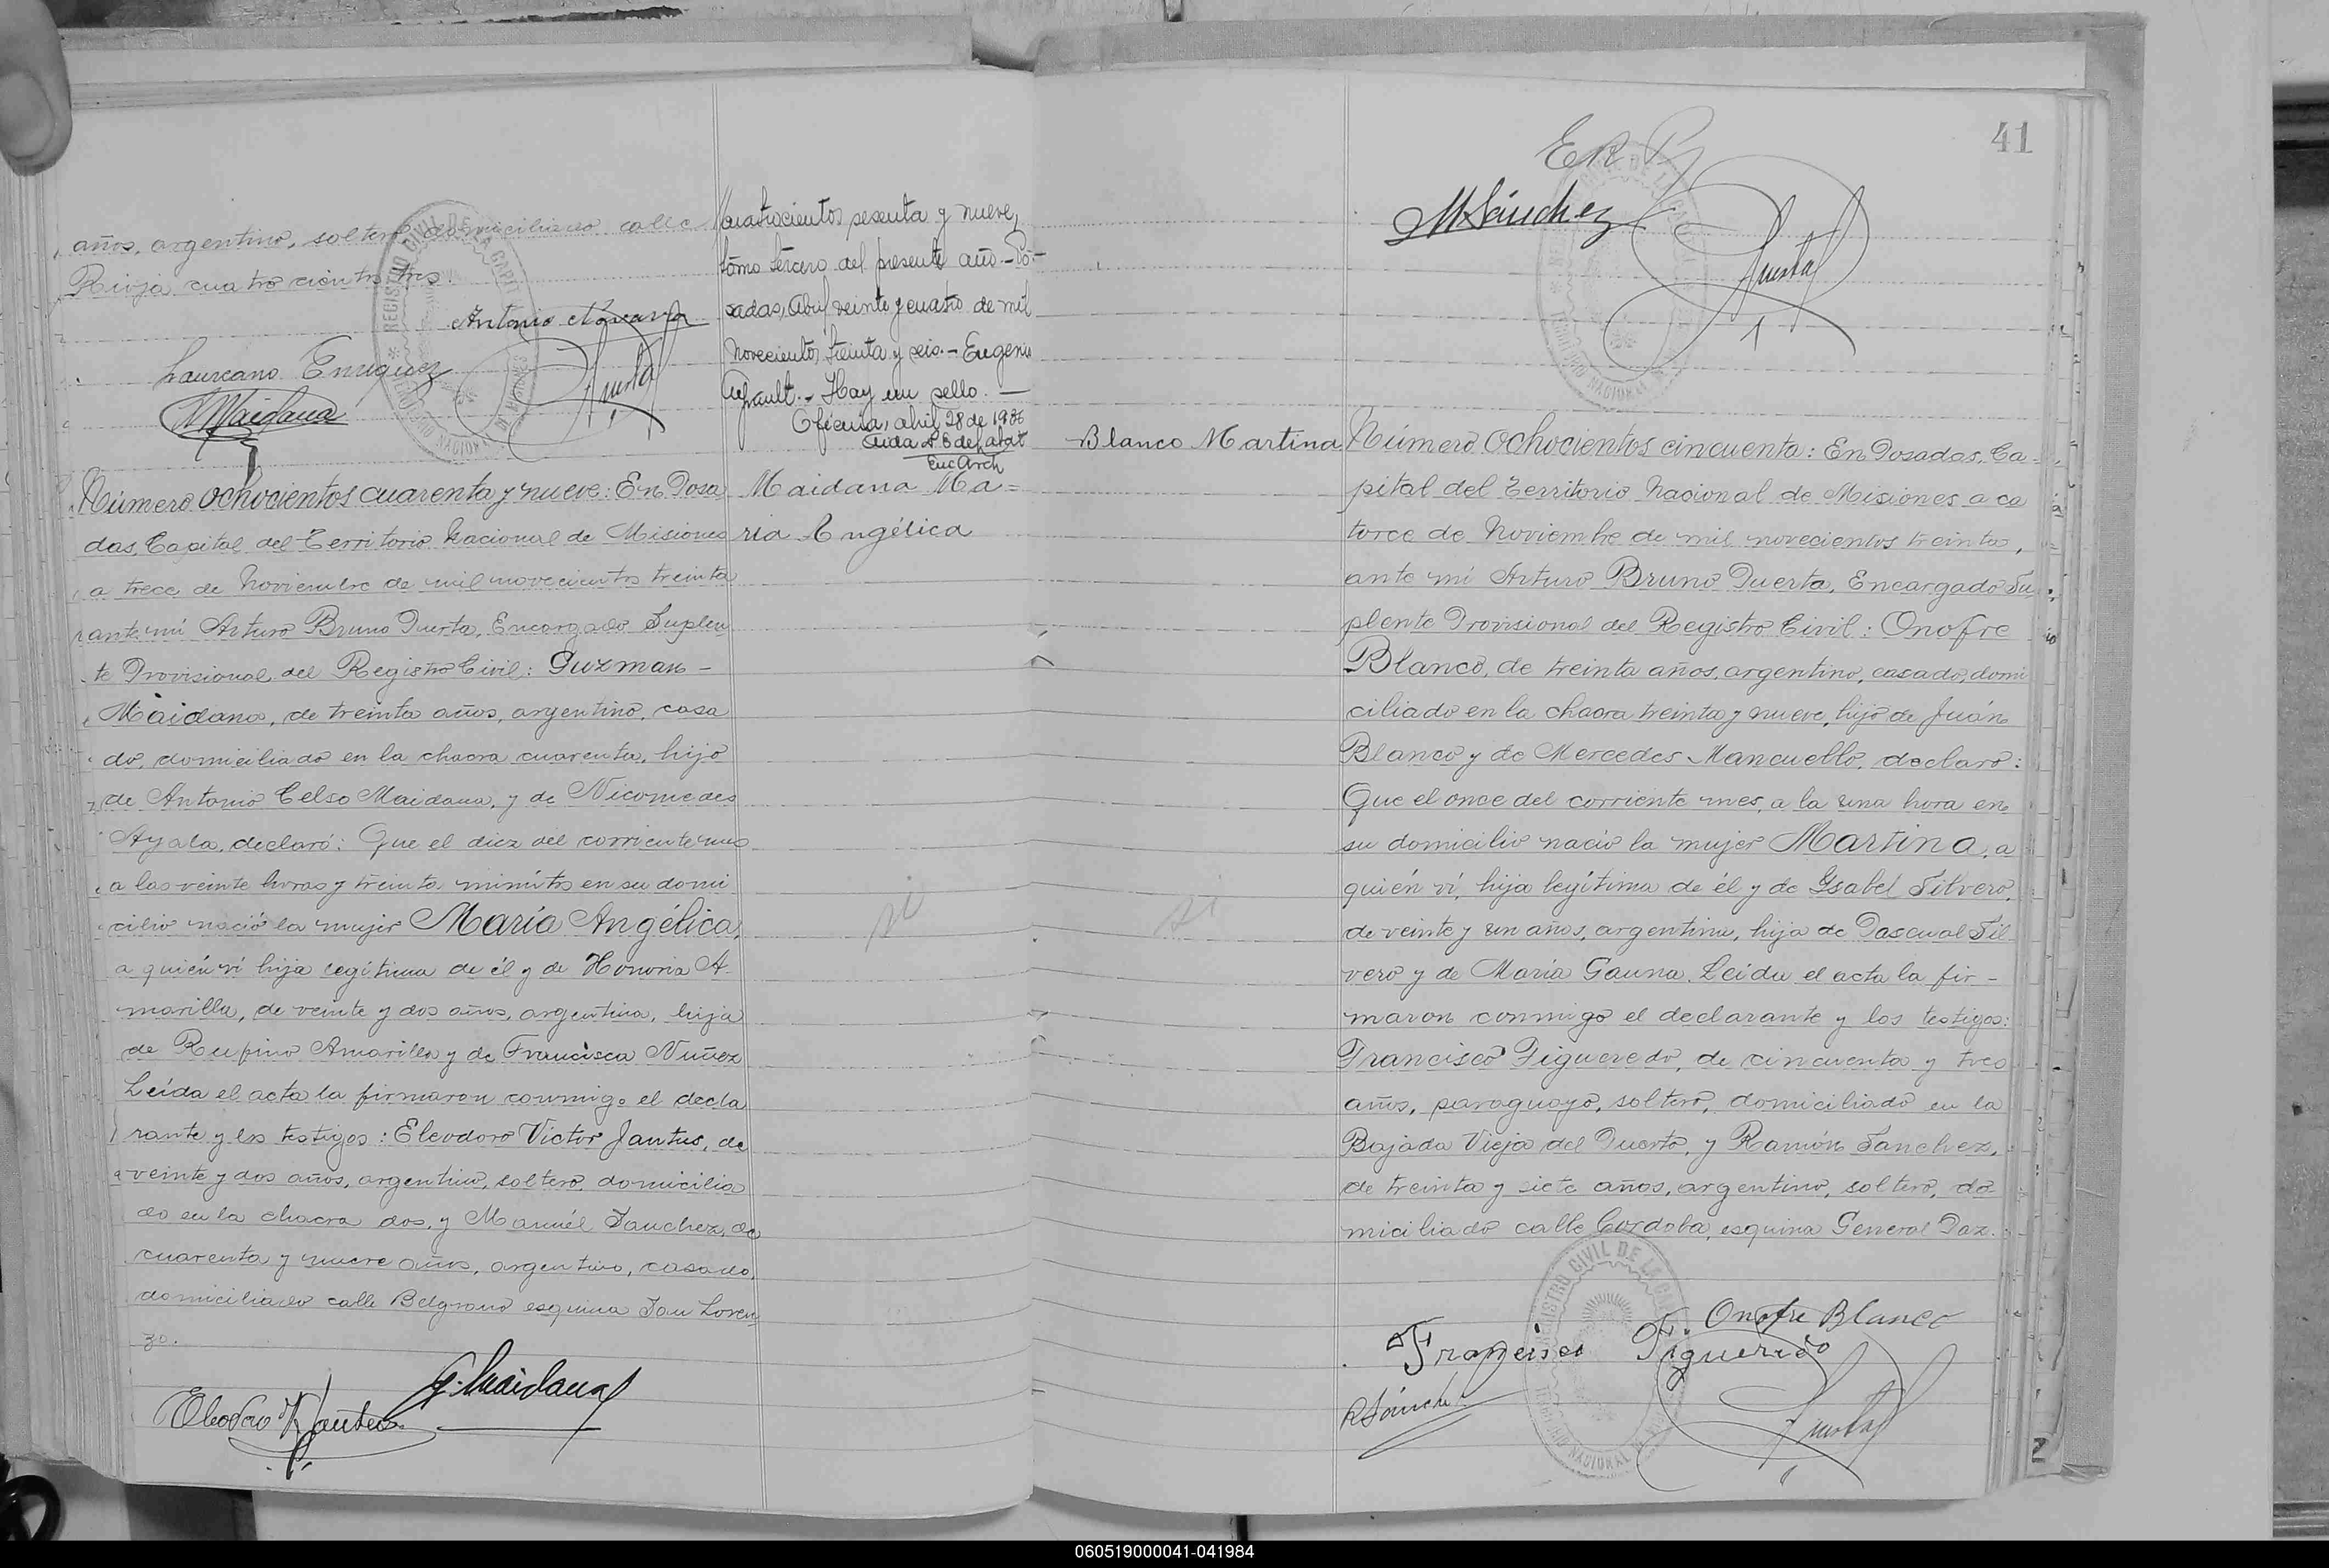 años, argentino, soltero domiciliado calle
Rioja cuatrocientos tres.
Laureano Enriquez
Maidana
cuatrocientos sesenta y nueve,
tomo tercero del presente año - Po-
sadas, Abril veinte y cuatro de mil
novecientos treinta y seis. - Eugenio
Hay un sello. -
Oficina, abril 28 de 1936
Enc Arch
Número Ochocientos cuarenta y nueve: En Posa
das, Capital del Territorio Nacional de Misiones
a trece de Noviembre de mil novecientos treinta
ante mi Arturo Bruno Puerta, Encargado Suplen
te Provisional del Registro Civil: Guzman -
Maidana, de treinta años, argentino, casa
do, domiciliado en la chacra cuarenta, hijo
de Antonio Celso Maidana, y de Nicomedes
Ayala, declaró: Que el diez del corriente mes
a las veinte horas y treinta minutos en su domi
cilio nació la mujer María Angélica,
a quién vi hija legítima de él y de Honoria A-
marilla, de veinte y dos años, argentina, hija
de Rufino Amarilla y de Francisca Nuñez
Leída el acta la firmaron conmigo el decla
rante y los testigos: Eleodoro Victor Jantus, de
veinte y dos años, argentino, soltero, domicilia
do en la chacra dos, y Manuél Sanchez, de
cuarenta y nueve años, argentino, casado,
domiciliado calle Belgrano esquina San Loren
zo.
G. Maidana
Eleodoro V. Jantus
Maidana Ma=
ria Angélica
41
M Sánchez
Puerta
Blanco Martina
Número Ochocientos cincuenta: En Posadas, Ca-
pital del Territorio Nacional de Misiones a ca
torce de Noviembre de mil novecientos treinta,
ante mi Arturo Bruno Puerta, Encargado Su
plente Provisional del Registro Civil: Onofre
Blanco, de treinta años, argentino, casado, domi
ciliado en la chacra treinta y nueve, hijo de Juán
Blanco y de Mercedes Mancuello, declaro:
Que el once del corriente mes, a la una hora en
su domicilio nació la mujer Martina, a
quién ví, hija legítima de él y de Ysabel Silvero,
de veinte y un años, argentina, hija de Pascual Sil
vero y de María Gauna. Leida el acta la fir-
maron conmigo el declarante y los testigos:
Francisco Figueredo, de cincuenta y tres
años, paraguayo, soltero, domiciliado en la
Bajada Vieja del Puerto, y Ramón Sanchez,
de treinta y siete años, argentino, soltero, do
miciliado calle Cordoba, esquina General Paz.
REGISTRO CIVIL DE LA
Onofre Blanco
Francisco Figueredo
R Sánchez
Puerta
060519000041-041984